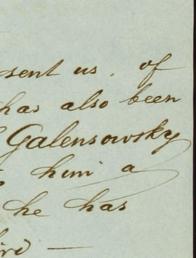 sent us, of
has also been
Galensowsky
him a
he has